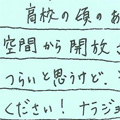 高校の頃のあ
空間から開放さ
つらいと思うけど、
ください！ナラジョ